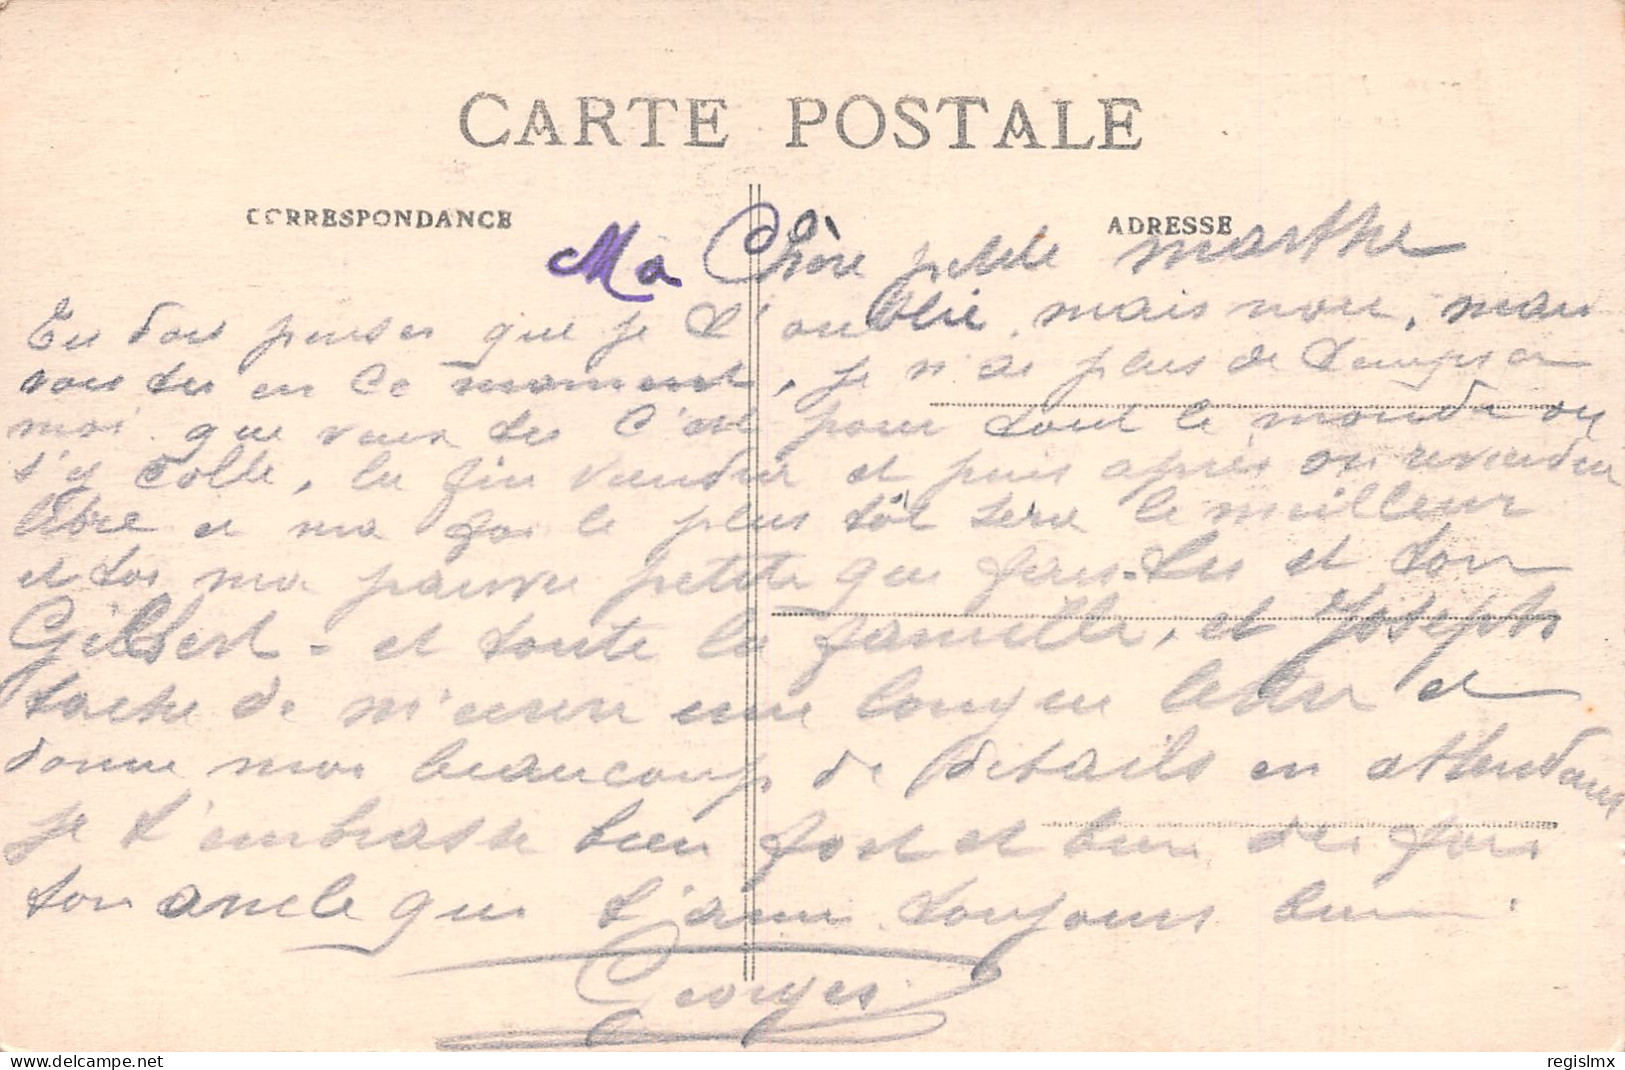 CARTE POSTALE
CORRESPONDANCE
ADRESSE
Ma Chère petite Marthe
Tu dois penser que je t'oublie, mais non, mais
vois tu en ce moment, je n'ai plus de temps a
moi que veux tu c'est pour tout le monde on
s'y colle, la fin viendra et puis après on reviendra
libre et ma foi le plus tôt sera le meilleur
et toi ma pauvre petite que fais-tu et ton
Gilbert - et toute la famille, et Joseph
tache de m'envoi une longue lettre et
donne moi beaucoup de détails en attendant
je t'embrasse bien fort et bien des fois
ton oncle qui t'aime toujours bien.
Georges
www.delcampe.net
regislmx